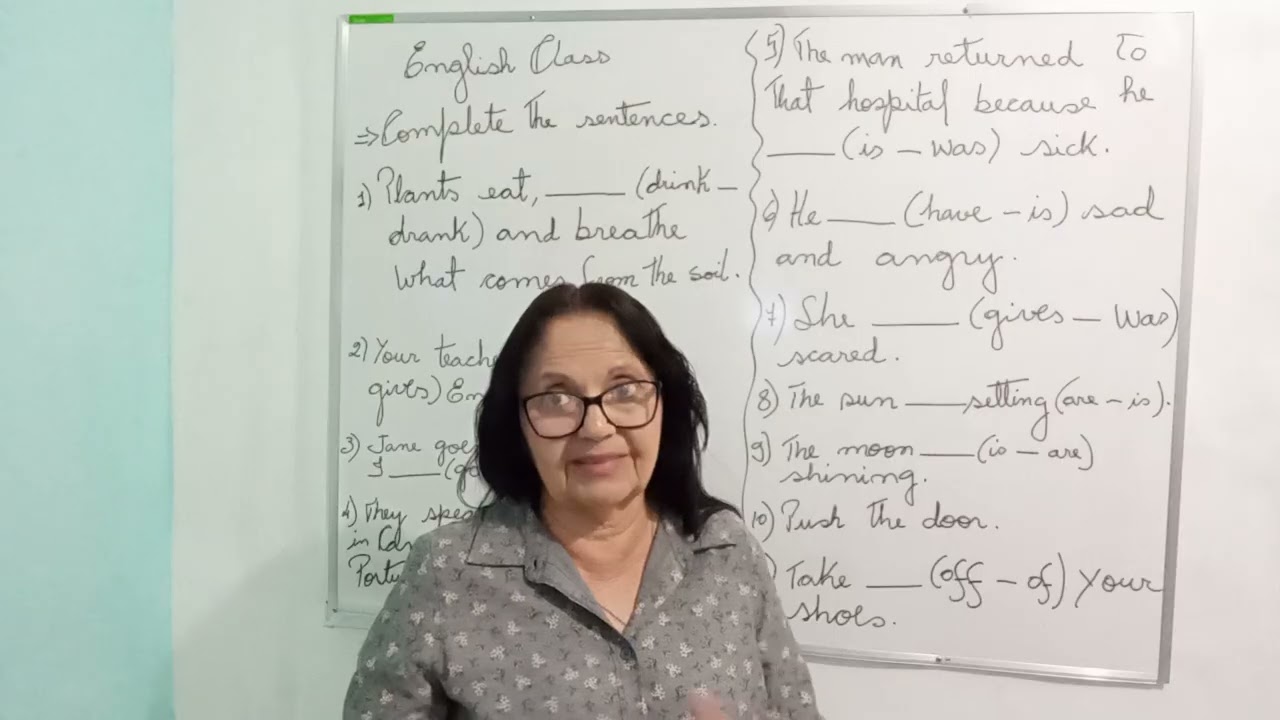 English Class
⇒ Complete the sentences.
1) Plants eat, ______ (drink –
drank) and breathe
what comes from the soil.
2) Your
gives)
3) Jane
I ____
4) They
in
5) The man returned to
that hospital because he
_____ (is – was) sick.
6) He _____ (have – is) sad
and angry.
7) She ______ (gives – was)
scared.
8) The sun _____ setting (are – is).
9) The moon ____ (is – are)
shining.
10) Push the door.
Take ____ (off – of) your
shoes.